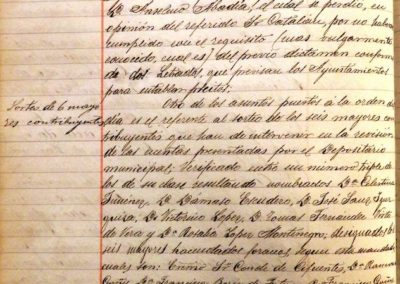 Dn. Anselmo Abadía, el cual se perdió, en
opinión del referido Sr Catalán, por no haber
cumplido con el requisito (mas vulgarmente
conocido, cual es) del previo dictamen conforme
de dos Letrados, que precisan los Ayuntamientos
para entablar pleitos.
Sorteo de 6 mayo
res contribuyentes
Otro de los asuntos puestos á la orden del
día es el referente al sorteo de los seis mayores con
tribuyentes que han de intervenir en la revisión
de las cuentas presentadas por el Depositario
municipal, verificado entre un número triple de
los de su clase resultando nombrados Dª Celestina
Jimenez, D. Damaso Escudero, D. José Sanz
D. Victorino Lopez, D. Tomas Fernandez
de Vera y Dª Rosalia Lopez Montenegro, designados los
seis mayores hacendados foraneos, segun esta mandado
cuales son: Excmo Sr Conde de Cifuentes, Dª Ramona
D. Francisco